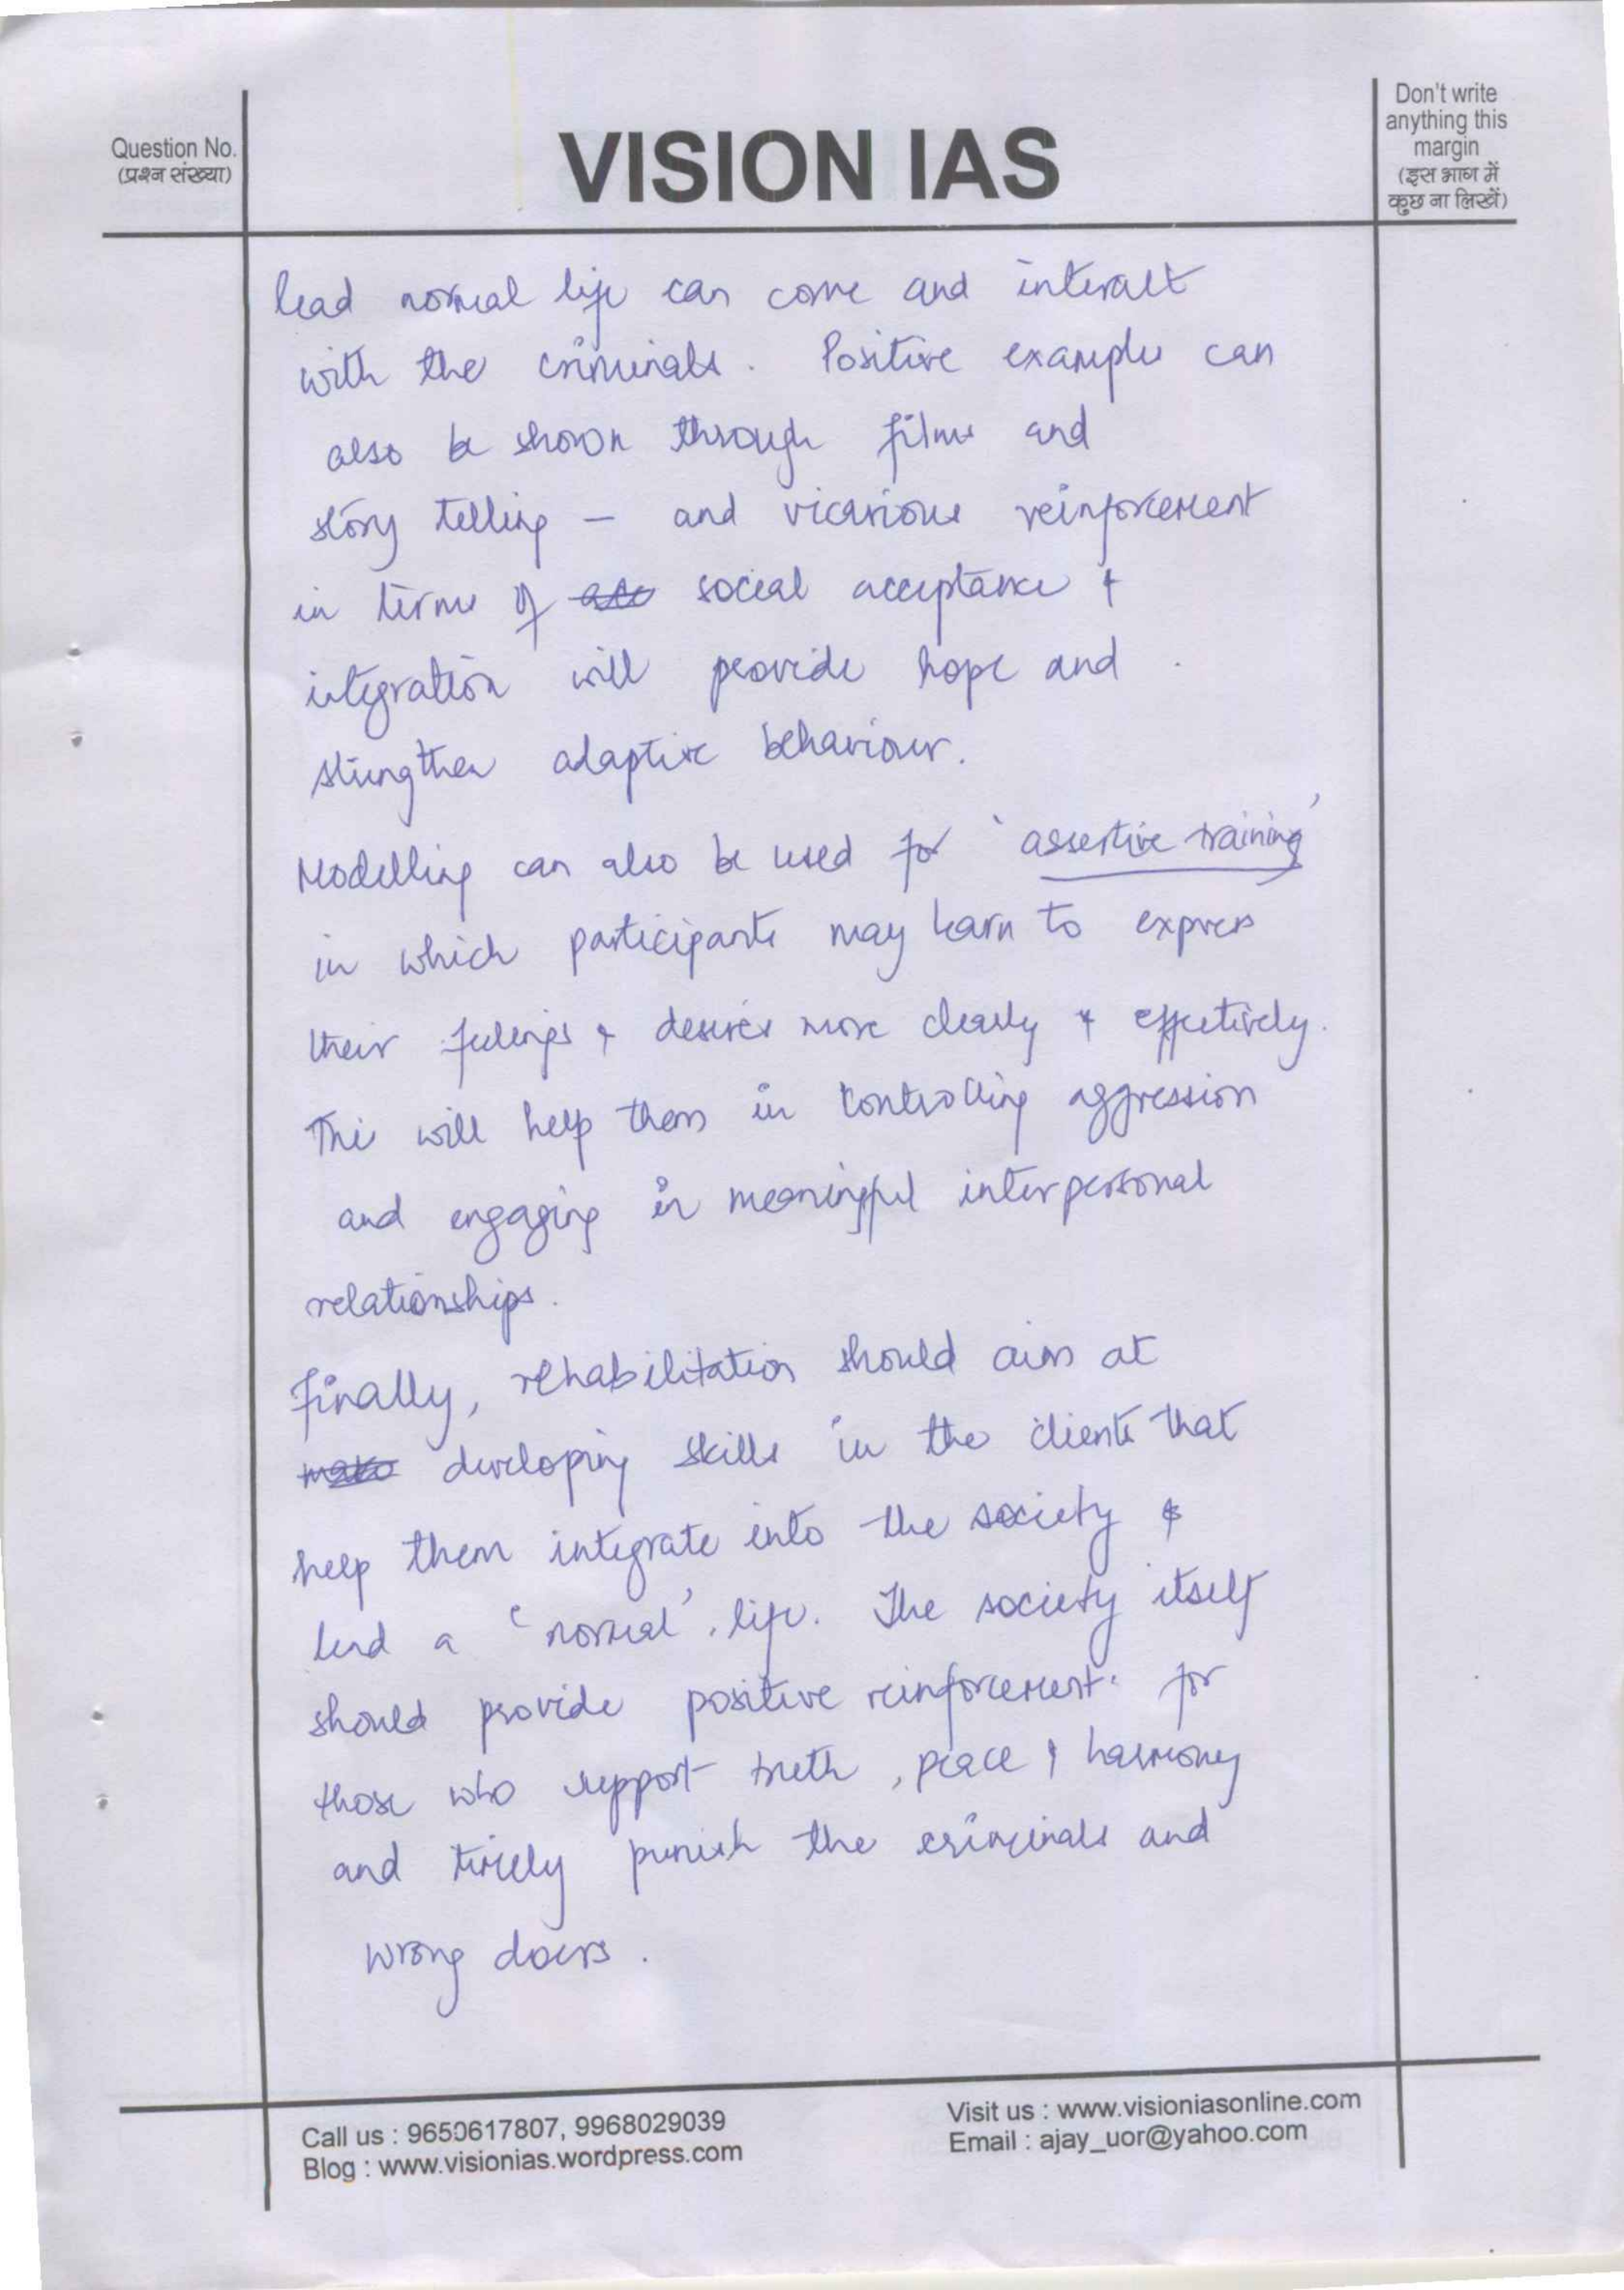 Question No.
(प्रश्न संख्या)
VISION IAS
Don't write
anything this
margin
(इस भाग में
कुछ ना लिखें)
lead normal life can come and interact
with the criminals. Positive examples can
also be shown through films and
story telling – and vicarious reinforcement
in terms of social acceptance &
integration will provide hope and
strengthen adaptive behaviour.
Modelling can also be used for 'assertive training'
in which participants may learn to express
their feelings & desires more clearly & effectively.
This will help them in controlling aggression
and engaging in meaningful interpersonal
relationships.
Finally, rehabilitation should aim at
developing skills in the clients that
help them integrate into the society &
lead a 'normal' life. The society itself
should provide positive reinforcement for
those who support truth, peace & harmony
and timely punish the criminals and
wrong doers.
Call us : 9650617807, 9968029039
Blog : www.visionias.wordpress.com
Visit us : www.visioniasonline.com
Email : ajay_uor@yahoo.com